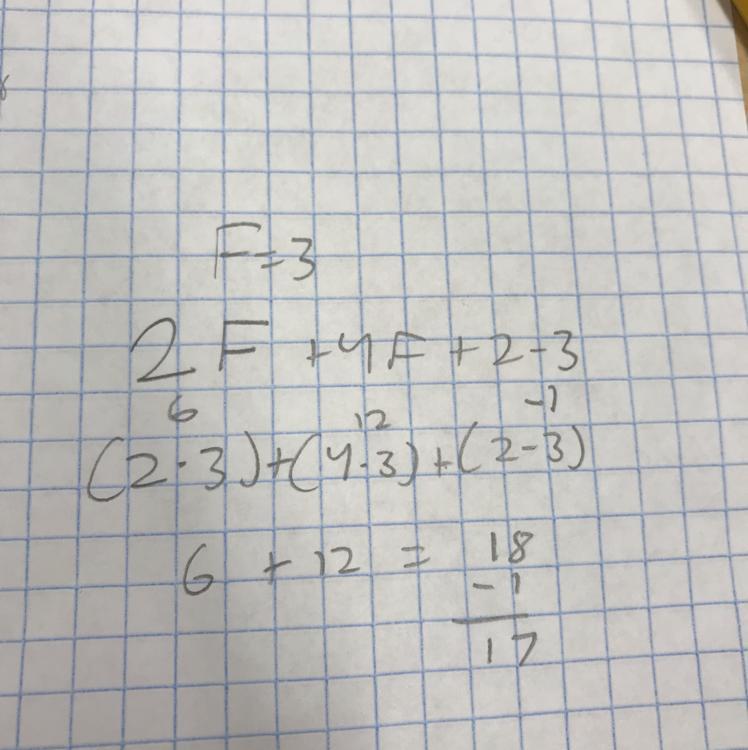 F=3
2F+4F+2-3
6 12 -1
(2·3)+(4·3)+(2-3)
6+12=18
-1
17